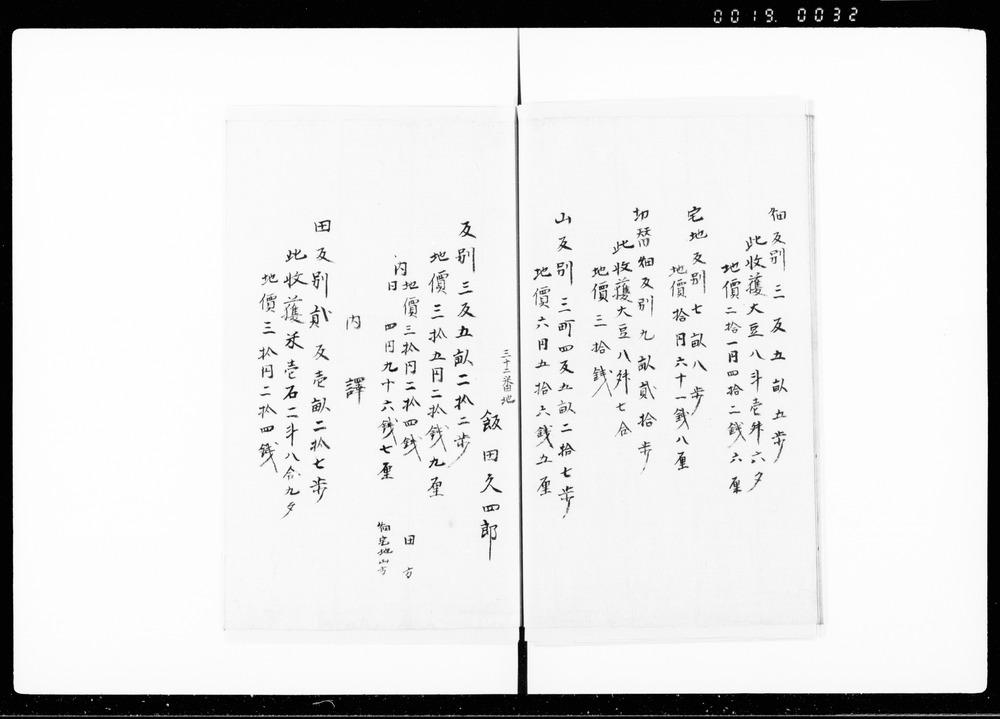 0019. 0032
畑反別三反五畝五歩
此收穫大豆八斗壱舛六夕
地價二拾一円四拾二錢六厘
宅地反別七畝八歩
地價拾円六十一錢八厘
切替畑反別九畝貳拾歩
此收穫大豆八舛七合
地價三拾錢
山反別三町四反五畝二拾七歩
地價六円五拾六錢五厘
三十二番地
飯田久四郎
反別三反五畝二拾二歩
地價三拾五円二拾錢九厘
内
地價三拾円二拾四錢 田方
同四円九十六錢七厘 畑宅地山方
内譯
田反別貳反壱畝二拾七歩
此收穫米壱石二斗八合九夕
地價三拾円二拾四錢